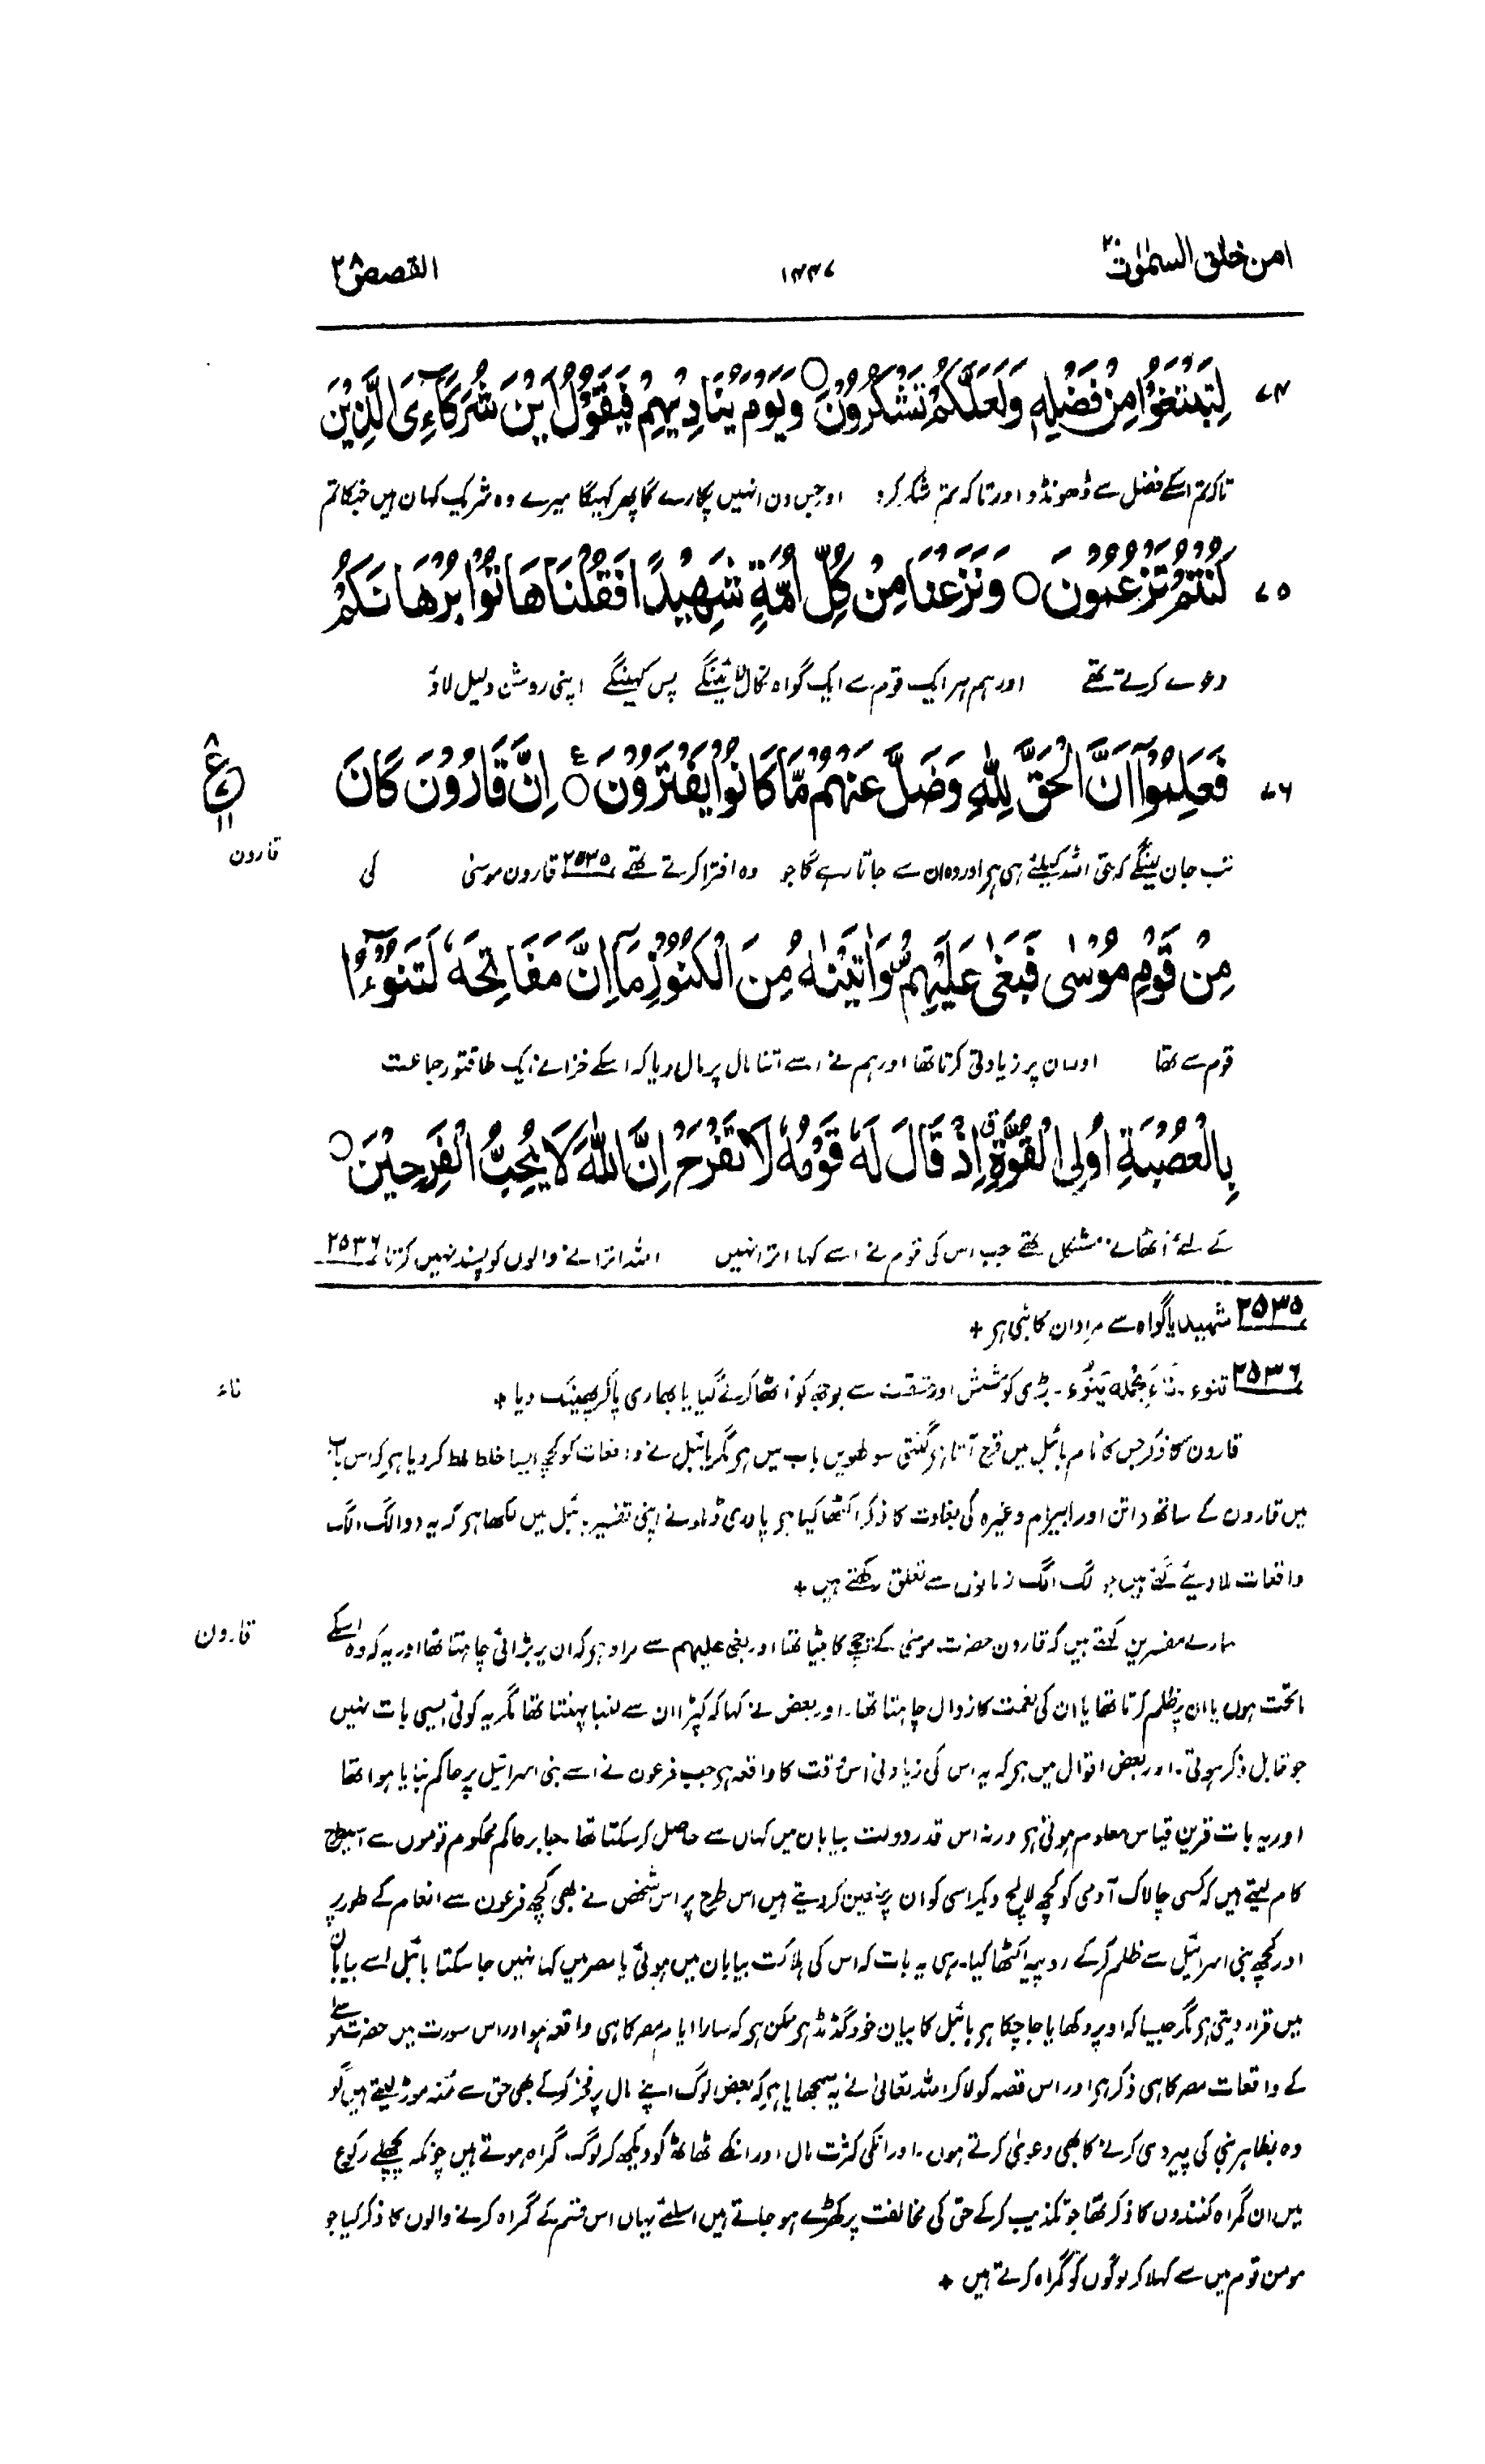 امن خلق السمٰوٰت ۲۰
۱۴۴۷
القصص ۲۸
۷۴ لِتَبْتَغُوْا مِنْ فَضْلِهٖ وَلَعَلَّكُمْ تَشْكُرُوْنَ ○ وَيَوْمَ يُنَادِيْهِمْ فَيَقُوْلُ اَيْنَ شُرَكَآءِيَ الَّذِيْنَ
تاکہ تم اسکے فضل سے ڈھونڈو اور تاکہ تم شکر کرو اور جس دن انہیں پکارے گا پھر کہیگا میرے وہ شریک کہاں ہیں جنکا تم
۷۵ كُنْتُمْ تَزْعُمُوْنَ ○ وَنَزَعْنَا مِنْ كُلِّ اُمَّةٍ شَهِيْدًا فَقُلْنَا هَاتُوْا بُرْهَانَكُمْ
دعوے کرتے تھے اور ہم ہر ایک قوم سے ایک گواہ نکال لائینگے پس کہینگے اپنی روشن دلیل لاؤ
۷۶ فَعَلِمُوْٓا اَنَّ الْحَقَّ لِلّٰهِ وَضَلَّ عَنْهُمْ مَّا كَانُوْا يَفْتَرُوْنَ ○ اِنَّ قَارُوْنَ كَانَ
ع ۸ ۷ ۱۱
تب جان لینگے کہ حق اللہ کیلئے ہی ہر اور وہ ان سے جاتا رہے گا جو وہ افترا کرتے تھے ۲۵۳۵ قارون موسیٰ کی
قارون
مِنْ قَوْمِ مُوْسٰى فَبَغٰى عَلَيْهِمْ وَاٰتَيْنٰهُ مِنَ الْكُنُوْزِ مَآ اِنَّ مَفَاتِحَهٗ لَتَنُوْٓءُ
قوم سے تھا اور ان پر زیادتی کرتا تھا اور ہم نے اسے اتنا مال پر مال دیا کہ اسکے خزانے ایک طاقتور جماعت
بِالْعُصْبَةِ اُولِى الْقُوَّةِ اِذْ قَالَ لَهٗ قَوْمُهٗ لَا تَفْرَحْ اِنَّ اللّٰهَ لَا يُحِبُّ الْفَرِحِيْنَ ○
کے لئے اٹھانے مشکل تھے جب اس کی قوم نے اسے کہا اترا نہیں اللہ اترانے والوں کو پسند نہیں کرتا ۲۵۳۶
۲۵۳۵ شہید یا گواہ سے مراد ان کا نبی ہر +
۲۵۳۶ تنوء ۔ نَاءَ بِحِملِهٖ يَنُوْء ۔ بڑی کوشش اور مشقت سے بوجھ کو اٹھا کر لے گیا یا بھاری پا کر پھینک دیا +
ناء
قارون کا ذکر جس کا نام بائبل میں قرح آتا ہر گنتی سولھویں باب میں ہر مگر بائبل نے واقعات کو کچھ ایسا خلط ملط کر دیا ہر کہ اس باب
میں قارون کے ساتھ داتن اور ابیرام وغیرہ کی بغاوت کا ذکر اکٹھا کیا ہر پادری ڈملو نے اپنی تفسیر بائبل میں لکھا ہر کہ یہ دو الگ الگ
واقعات ملا دیئے گئے ہیں جو الگ الگ زمانوں سے تعلق رکھتے ہیں +
ہمارے مفسرین لکھتے ہیں کہ قارون حضرت موسیٰ کے چچا کا بیٹا تھا اور بغی علیہم سے مراد ہر کہ ان پر بڑائی چاہتا تھا اور یہ کہ وہ اسکے
قارون
ماتحت ہوں یا ان پر ظلم کرتا تھا یا ان کی نعمت کا زوال چاہتا تھا۔ اور بعض نے کہا کہ کپڑا ان سے لنبا پہنتا تھا مگر یہ کوئی ایسی بات نہیں
جو قابل ذکر ہوتی۔ اور بعض اقوال میں ہر کہ یہ اس کی زیادتی اس وقت کا واقعہ ہر جب فرعون نے اسے بنی اسرائیل پر حاکم بنایا ہوا تھا
اور یہ بات قرین قیاس معلوم ہوتی ہر ورنہ اس قدر دولت بیابان میں کہاں سے حاصل کر سکتا تھا۔ جابر حاکم محکوم قوموں سے اسیطرح
کام لیتے ہیں کہ کسی چالاک آدمی کو کچھ لالچ دیکر اسی کو ان پر معین کر دیتے ہیں اس طرح پر اس شخص نے بھی کچھ فرعون سے انعام کے طور پر
اور کچھ بنی اسرائیل سے ظلم کرکے روپیہ اکٹھا کیا۔ رہی یہ بات کہ اس کی ہلاکت بیابان میں ہوئی یا مصر میں کہا نہیں جا سکتا بائبل اسے بیابان
میں قرار دیتی ہر مگر جیسا کہ اوپر دکھایا جا چکا ہر بائبل کا بیان خود گڈمڈ ہر ممکن ہر کہ سارا ایام مصر کا ہی واقعہ ہو اور اس سورت میں حضرت موسیٰ
کے واقعات مصر کا ہی ذکر ہر اور اس قصہ کو لا کر اللہ تعالیٰ نے یہ سمجھایا ہر کہ بعض لوگ اپنے مال پر فخر کرکے بھی حق سے منہ موڑ لیتے ہیں گو
وہ بظاہر نبی کی پیروی کرنے کا بھی دعویٰ کرتے ہوں۔ اور انکی کثرت مال اور انکے ٹھاٹھ کو دیکھ کر لوگ گمراہ ہوتے ہیں چونکہ پچھلے رکوع
میں ان گمراہ کنندوں کا ذکر تھا جو تکذیب کرکے حق کی مخالفت پر کھڑے ہو جاتے ہیں اسلئے یہاں اس قسم کے گمراہ کرنے والوں کا ذکر کیا جو
مومن قوم میں سے کہلا کر لوگوں کو گمراہ کرتے ہیں +